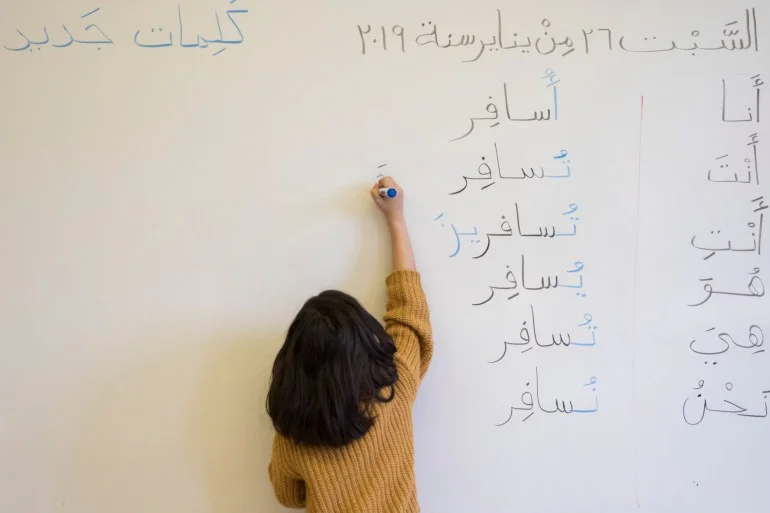 السَّبْت ٢٦ مِنْ يناير سنة ٢٠١٩
كَلِمات
أَنا أُسافِر
أَنْتَ تُسافِر
أَنْتِ تُسافرينَ
هُوَ يُسافِر
هِيَ تُسافِر
نَحْنُ نُسافِر